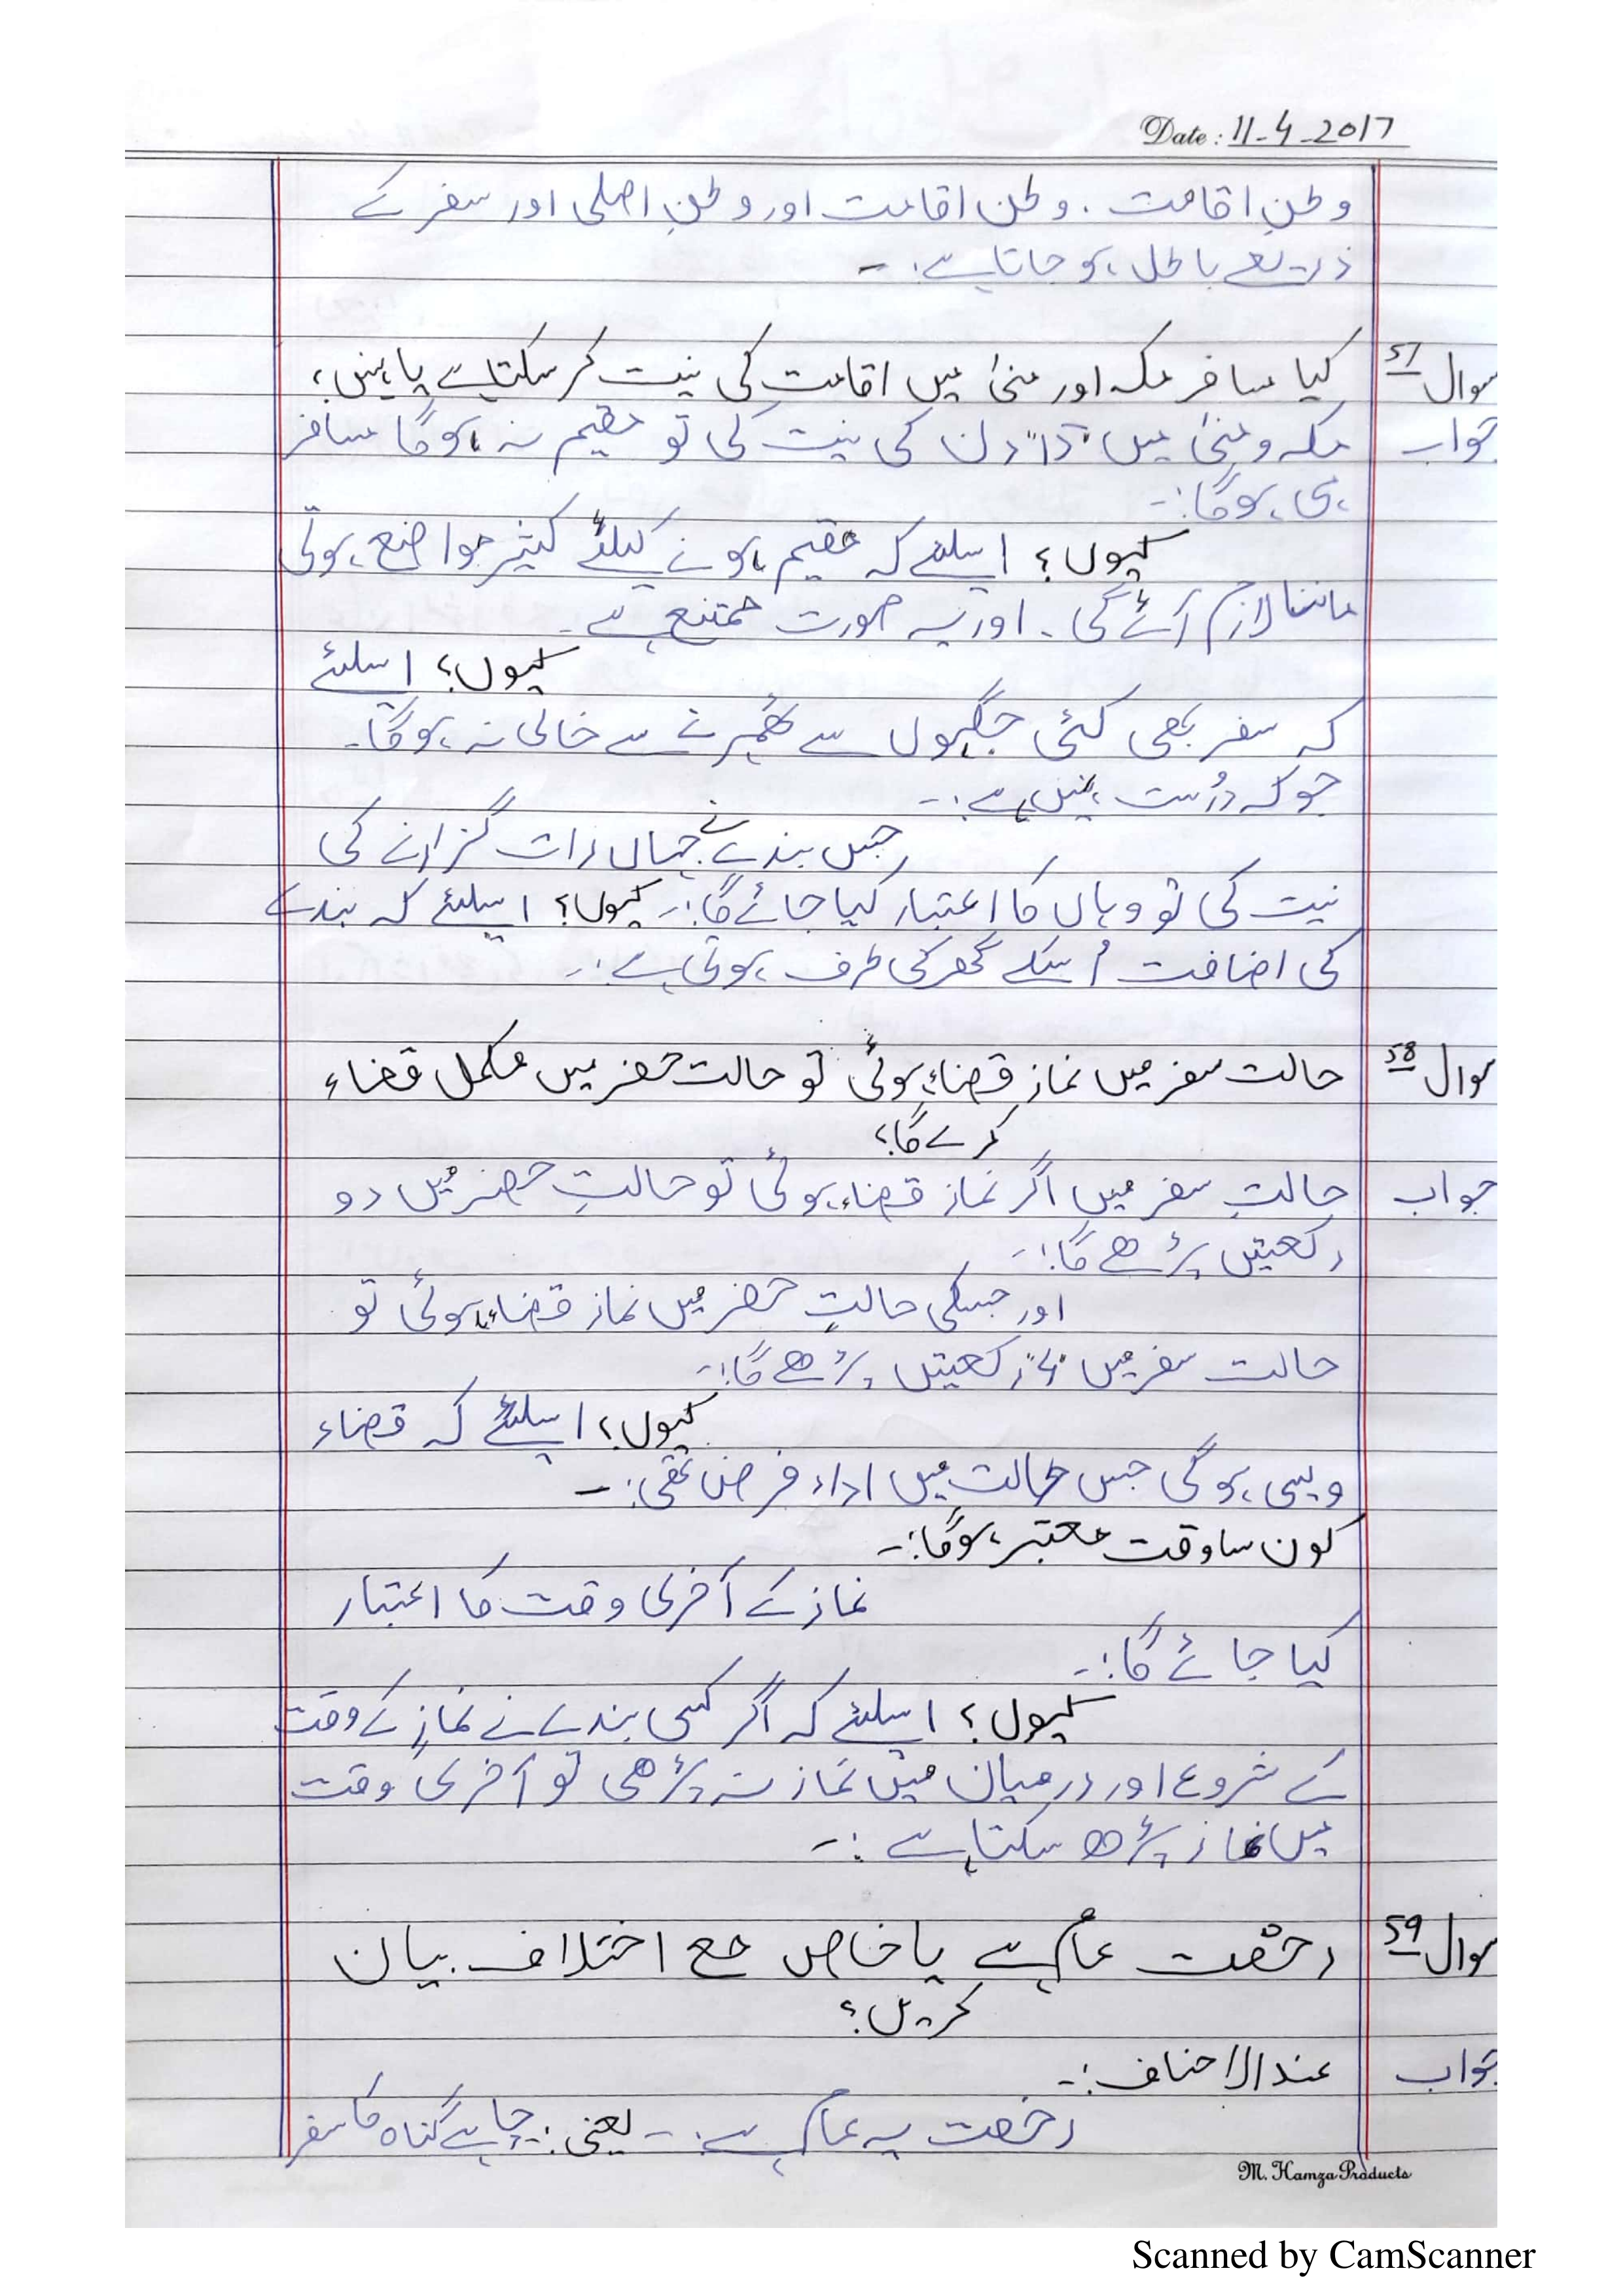 Date: 11-4-2017
وطنِ اقامت ، وطن اقامت اور وطنِ اصلی اور سفر کے
ذریعے باطل ہو جاتا ہے :-
سوال 57 کیا مسافر مکہ اور منیٰ میں اقامت کی نیت کر سکتا ہے یا نہیں؟
جواب مکہ و منیٰ میں "15" دن کی نیت کی تو مقیم نہ ہوگا مسافر
ہی ہوگا :-
کیوں؟ اسلئے کہ مقیم ہونے کیلئے کثیر مواضع ہوتی
ماننا لازم آئے گی ۔ اور یہ صورت ممتنع ہے ۔
کیوں؟ اسلئے
کہ سفر بھی کئی جگہوں سے ٹھہرنے سے خالی نہ ہوگا۔
جو کہ درُست نہیں ہے :-
جس بندے نے جہاں رات گزارنے کی
نیت کی تو وہاں کا اعتبار کیا جائے گا :- کیوں؟ اسلئے کہ بندے
کی اضافت اُسکے گھر کی طرف ہوتی ہے :-
سوال 58 حالت سفر میں نماز قضاء ہوئی تو حالت حضر میں مکمل قضاء
کرے گا؟
جواب حالتِ سفر میں اگر نماز قضاء ہوئی تو حالتِ حضر میں دو
رکعتیں پڑھے گا :-
اور جسکی حالتِ حضر میں نماز قضاء ہوئی تو
حالت سفر میں "4" رکعتیں پڑھے گا :-
کیوں؟ اسلئے کہ قضاء
ویسی ہوگی جس حالت میں اداء فرض تھی :-
کون سا وقت معتبر ہوگا :-
نماز کے آخری وقت کا اعتبار
کیا جائے گا :-
کیوں؟ اسلئے کہ اگر کسی بندے نے نماز کے وقت
کے شروع اور درمیان میں نماز نہ پڑھی تو آخری وقت
میں نماز پڑھ سکتا ہے :-
سوال 59 رخصت عام ہے یا خاص مع اختلاف بیان
کریں؟
جواب عند الاحناف :-
رخصت یہ عام ہے :- یعنی :- چاہے گناہ کا سفر
M. Hamza Products
Scanned by CamScanner